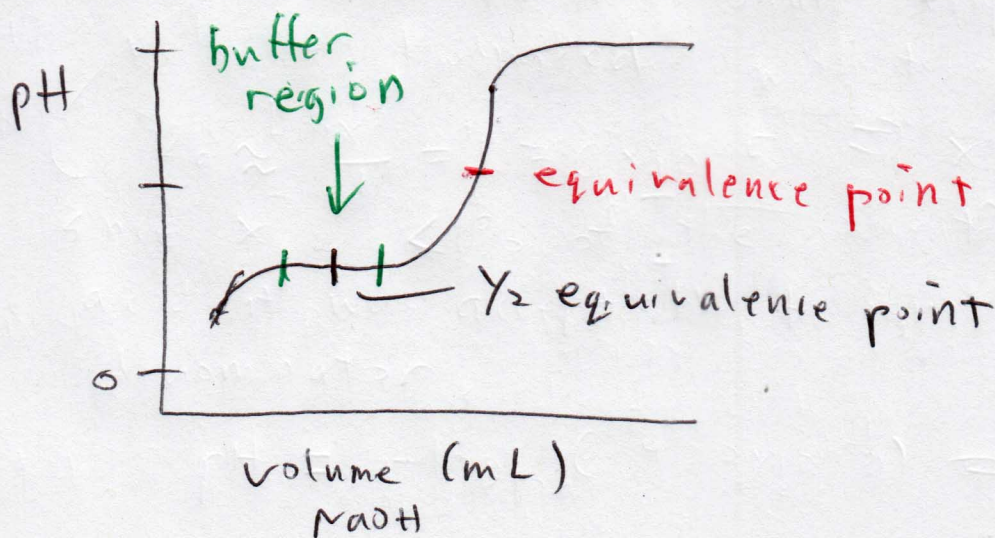 buffer
region
pH
equivalence point
½ equivalence point
0
volume (mL)
NaOH